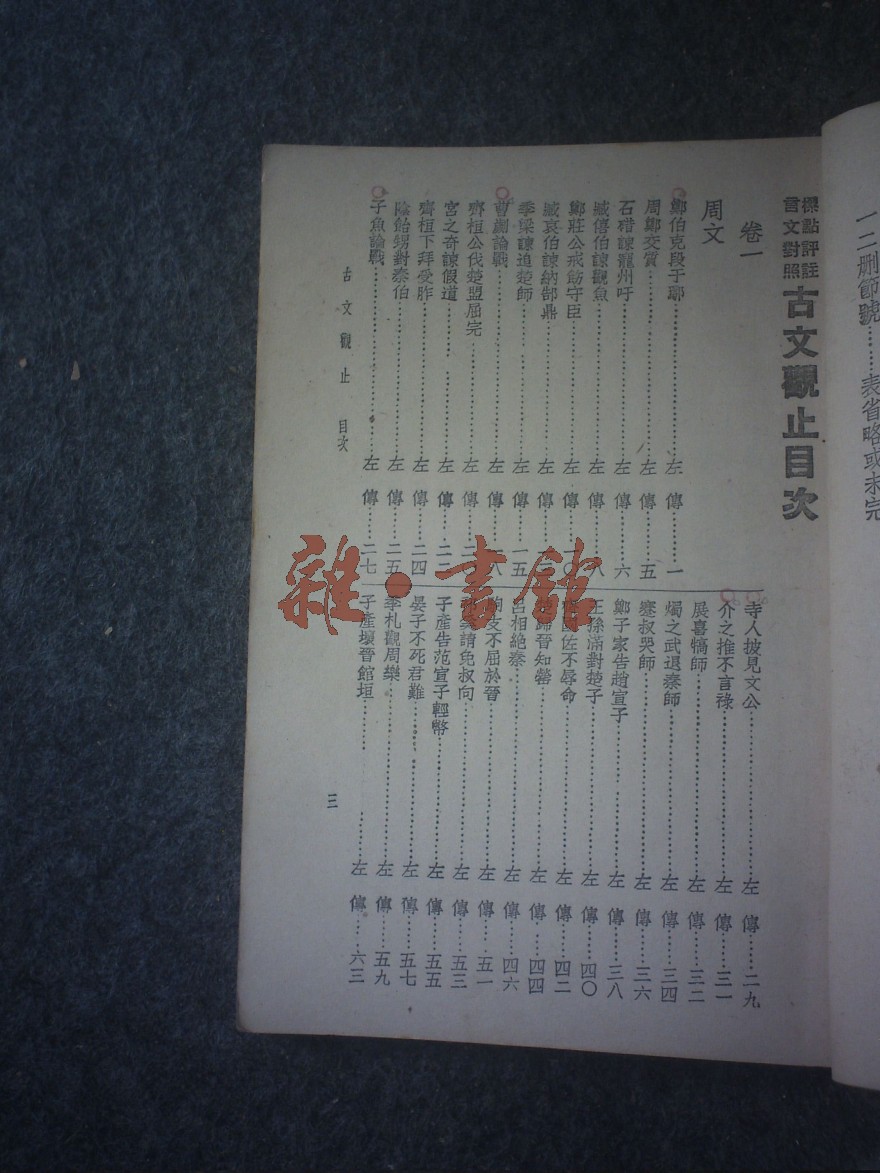 一二删節號……表省略或未完
標點評註
言文對照
古文觀止目次
卷一
周文
鄭伯克段于鄢……左傳……一
周鄭交質……左傳……五
石碏諫寵州吁……左傳……六
臧僖伯諫觀魚……左傳……八
鄭莊公戒飭守臣……左傳……一〇
臧哀伯諫納郜鼎……左傳
季梁諫追楚師……左傳……一五
曹劌論戰……左傳……一八
齊桓公伐楚盟屈完……左傳
宮之奇諫假道……左傳……二二
齊桓下拜受胙……左傳……二四
陰飴甥對秦伯……左傳……二五
子魚論戰……左傳……二七
寺人披見文公……左傳……二九
介之推不言祿……左傳……三一
展喜犒師……左傳……三二
燭之武退秦師……左傳……三四
蹇叔哭師……左傳……三六
鄭子家告趙宣子……左傳……三八
王孫滿對楚子……左傳……四〇
國佐不辱命……左傳……四二
歸晉知罃……左傳……四四
呂相絕秦……左傳……四六
駒支不屈於晉……左傳……五一
奚請免叔向……左傳……五三
子產告范宣子輕幣……左傳……五五
晏子不死君難……左傳……五七
季札觀周樂……左傳……五九
子產壞晉館垣……左傳……六三
古文觀止 目次
三
雜·書館